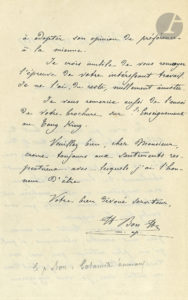 à adopter son opinion de préférence
à la mienne.
Je crois inutile de vous renvoyer
l'épreuve de votre intéressant travail
je ne l'ai, du reste, nullement annotée.
Je vous remercie enfin de l'envoi
de votre brochure sur l'Enseignement
au Tong King
Veuillez bien, cher Monsieur,
croire toujours aux sentiments res-
pectueux avec lesquels j'ai l'hon-
neur d'être
Votre bien dévoué serviteur,
Bon